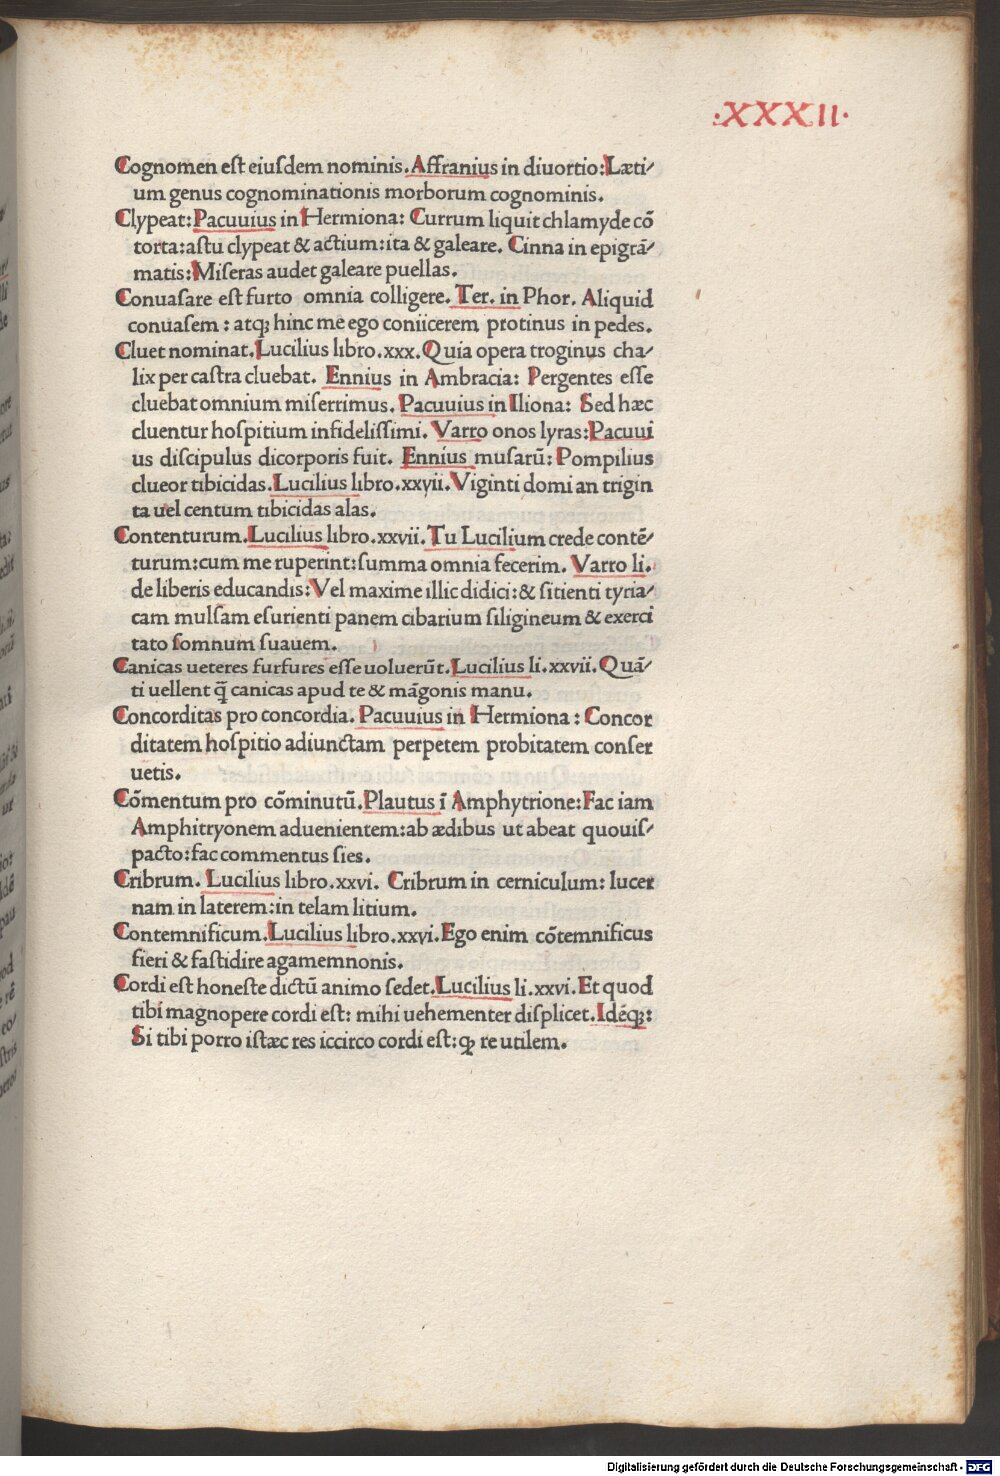 ·XXXII·
Cognomen est eiusdem nominis. Affranius in diuortio: Læti-
um genus cognominationis morborum cognominis.
Clypeat: Pacuuius in Hermiona: Currum liquit chlamyde cõ
torta: astu clypeat & actium: ita & galeare. Cinna in epigrã-
matis: Miseras audet galeare puellas.
Conuasare est furto omnia colligere. Ter. in Phor. Aliquid
conuasem: atq; hinc me ego coniicerem protinus in pedes.
Cluet nominat. Lucilius libro.xxx. Quia opera troginus cha-
lix per castra cluebat. Ennius in Ambracia: Pergentes esse
cluebat omnium miserrimus. Pacuuius in Iliona: Sed hæc
cluentur hospitium infidelissimi. Varro onos lyras: Pacuui
us discipulus dicorporis fuit. Ennius musarũ: Pompilius
clueor tibicidas. Lucilius libro.xxvii. Viginti domi an trigin
ta uel centum tibicidas alas.
Contenturum. Lucilius libro.xxvii. Tu Lucilium crede contẽ-
turum: cum me ruperint: summa omnia fecerim. Varro li.
de liberis educandis: Vel maxime illic didici: & sitienti tyria-
cam mulsam esurienti panem cibarium siligineum & exerci
tato somnum suauem.
Canicas ueteres furfures esse uoluerũt. Lucilius li.xxvii. Quã-
ti uellent q̃ canicas apud te & mãgonis manu.
Concorditas pro concordia. Pacuuius in Hermiona: Concor
ditatem hospitio adiunctam perpetem probitatem conser
uetis.
Cõmentum pro cõminutũ. Plautus ĩ Amphytrione: Fac iam
Amphitryonem aduenientem: ab ædibus ut abeat quouis-
pacto: fac commentus sies.
Cribrum. Lucilius libro.xxvi. Cribrum in cerniculum: lucer
nam in laterem: in telam litium.
Contemnificum. Lucilius libro.xxvi. Ego enim cõtemnificus
fieri & fastidire agamemnonis.
Cordi est honeste dictũ animo sedet. Lucilius li.xxvi. Et quod
tibi magnopere cordi est: mihi uehementer displicet. Idéq;:
Si tibi porro istæc res iccirco cordi est: ꝙ re utilem.
Digitalisierung gefördert durch die Deutsche Forschungsgemeinschaft - DFG